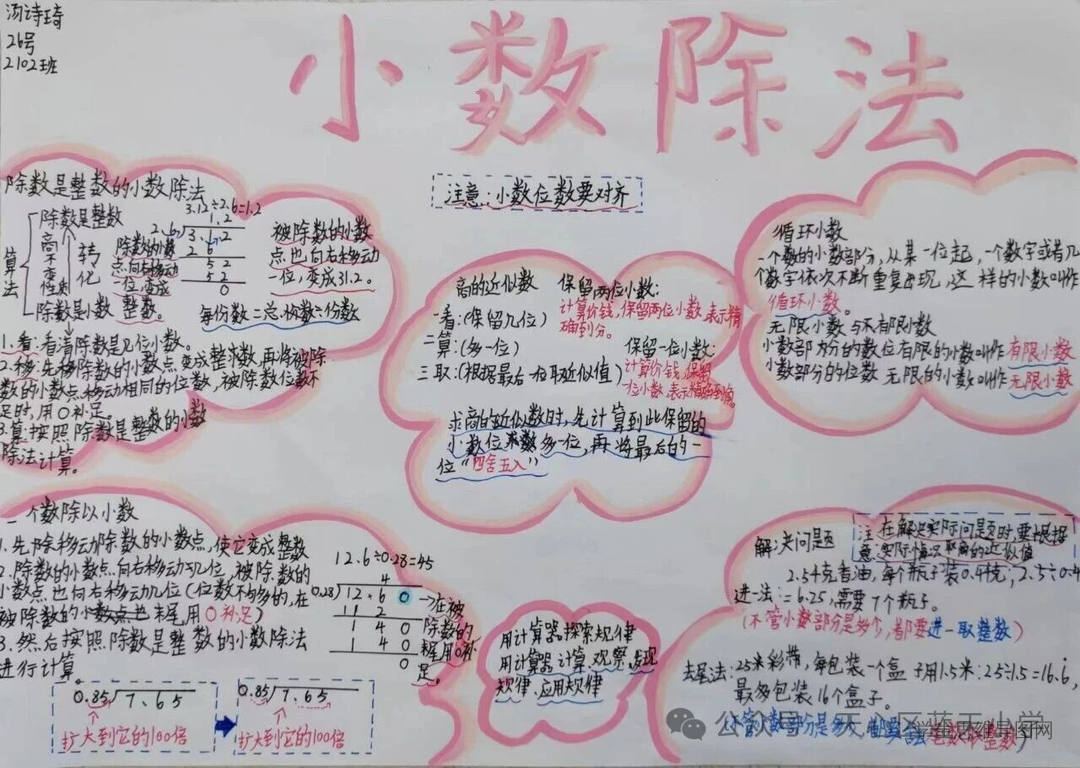 汤诗琦
26号
2102班
小数除法
注意:小数位数要对齐
除数是整数的小数除法
算法
除数是整数
商不变性质
转化
除数是小数
除数的小数
点向右移动
一位,变成
整数。
3.12÷2.6=1.2
1.2
2.6)3.12
2 6
5 2
5 2
0
被除数的小数
点也向右移动
一位,变成31.2。
每份数=总份数÷份数
1.看:看清除数是几位小数。
2.移:先移除数的小数点变成整求数,再将被除
数的小数点移动相同的位数,被除数位数不
足时,用0补足。
3.算:按照除数是整数的小数
除法计算。
商的近似数
一看:(保留几位)
二算:(多一位)
三取:(根据最后一位取近似值)
保留两位小数:
计算价钱,保留两位小数,表示精
确到分。
保留一位小数:
计算价钱,保留
一位小数,表示精确到角。
求商的近似数时,先计算到比保留的
小数位数多一位,再将最后的一
位“四舍五入”
循环小数
一个数的小数部分,从某一位起,一个数字或者几
个数字依次不断重复出现,这样的小数叫作
循环小数。
无限小数与有限小数
小数部分的数位有限的小数叫作有限小数
小数部分的位数无限的小数叫作无限小数
一个数除以小数
1.先除移动除数的小数点,使它变成整数
2.除数的小数点向右移动几位,被除数的
小数点也向右移动几位(位数不够的,在
被除数的小数点也末尾,用0补足)
3.然后按照除数是整数的小数除法
进行计算。
12.6÷0.28=45
4
0.28)12.60
11 2
1 4 0
1 4 0
0
在被
除数的
末尾用0补
足。
0.85)7.65
扩大到它的100倍
0.85)7.65
扩大到它的100倍
用计算器探索规律
用计算器计算,观察,发现
规律,应用规律
解决问题
注意:在解决实际问题时,要根据
实际情况取商的近似值
2.5千克香油,每个瓶子装0.4千克,2.5÷0.4
进一法:=6.25,需要7个瓶子。
(不管小数部分是多少,都要进一取整数)
去尾法:25米彩带,每包装一个盒子用1.5米:25÷1.5=16.6,
最多包装16个盒子。
不管小数部分是多少,都要
公众号